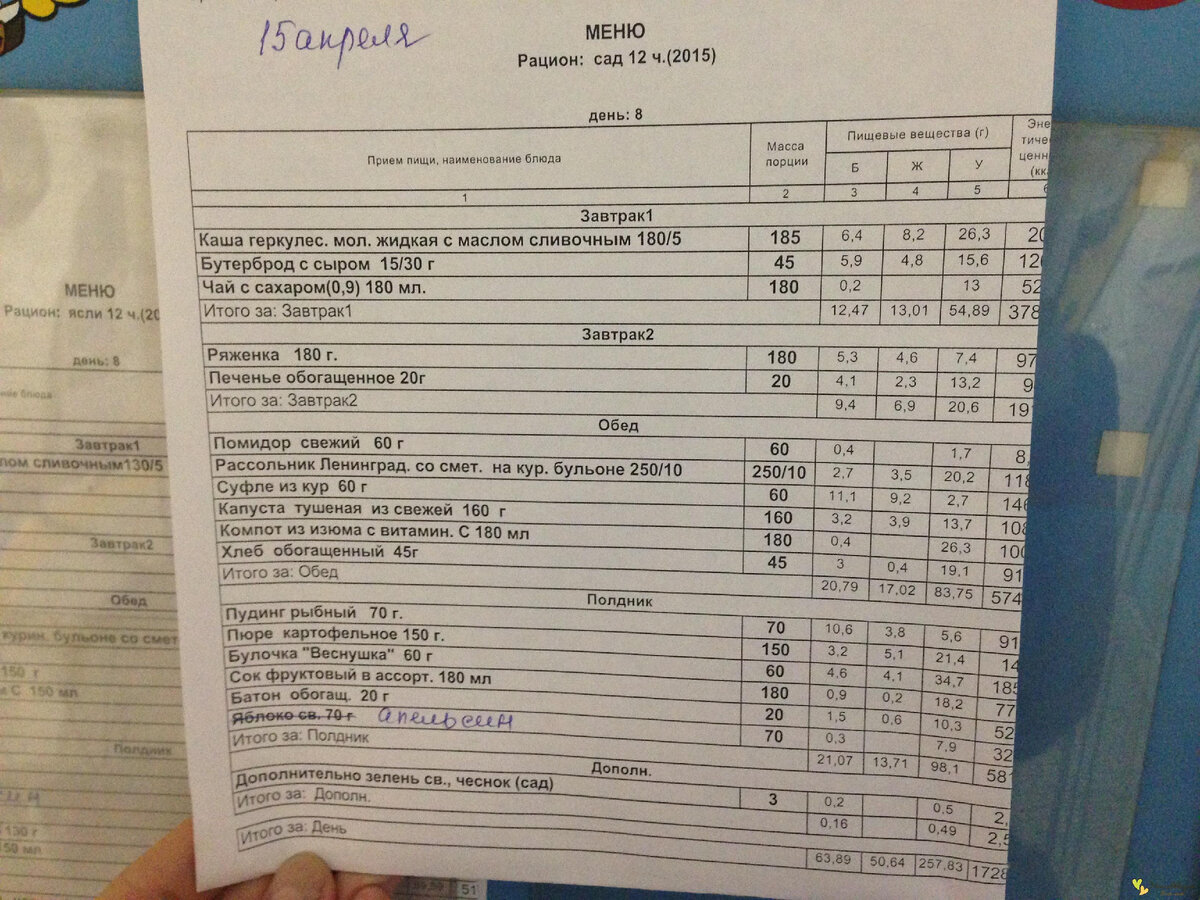 15 апреля
МЕНЮ
Рацион: сад 12 ч.(2015)
день: 8
Прием пищи, наименование блюда Масса порции Пищевые вещества (г) Б Ж У
1 2 3 4 5 6
Завтрак1
Каша геркулес. мол. жидкая с маслом сливочным 180/5 185 6,4 8,2 26,3
Бутерброд с сыром 15/30 г 45 5,9 4,8 15,6
Чай с сахаром(0,9) 180 мл. 180 0,2 13 52
Итого за: Завтрак1 12,47 13,01 54,89 378
Завтрак2
Ряженка 180 г. 180 5,3 4,6 7,4 97
Печенье обогащенное 20г 20 4,1 2,3 13,2
Итого за: Завтрак2 9,4 6,9 20,6
Обед
Помидор свежий 60 г 60 0,4 1,7
Рассольник Ленинград. со смет. на кур. бульоне 250/10 250/10 2,7 3,5 20,2
Суфле из кур 60 г 60 11,1 9,2 2,7
Капуста тушеная из свежей 160 г 160 3,2 3,9 13,7
Компот из изюма с витамин. С 180 мл 180 0,4 26,3
Хлеб обогащенный 45г 45 3 0,4 19,1 91
Итого за: Обед 20,79 17,02 83,75 574
Полдник
Пудинг рыбный 70 г. 70 10,6 3,8 5,6 91
Пюре картофельное 150 г. 150 3,2 5,1 21,4
Булочка "Веснушка" 60 г 60 4,6 4,1 34,7 185
Сок фруктовый в ассорт. 180 мл 180 0,9 0,2 18,2 77
Батон обогащ. 20 г 20 1,5 0,6 10,3 52
Яблоко св. 70 г апельсин 70 0,3 7,9 32
Итого за: Полдник 21,07 13,71 98,1 581
Дополн.
Дополнительно зелень св., чеснок (сад) 3 0,2 0,5
Итого за: Дополн. 0,16 0,49
Итого за: День 63,89 50,64 257,83 1728
МЕНЮ
Рацион: ясли 12 ч.(20
день: 8
Завтрак1
сливочным130/5
Завтрак2
Обед
курин. бульоне со смет
150 г
С 150 мл
Полдник
130 г
50 мл
51